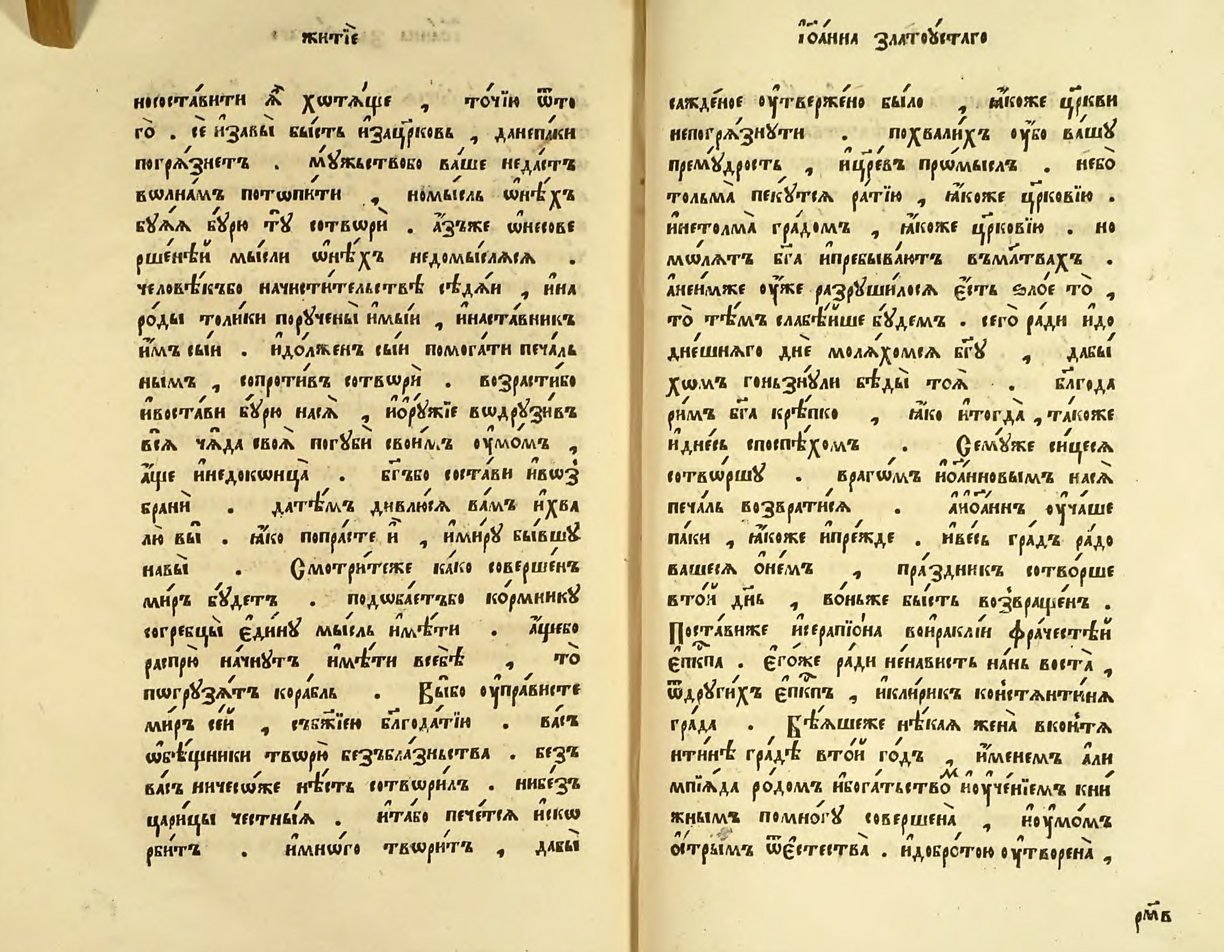 житїѐ
несоста́вити ѧ҆̀ хотѧ́ще , то́чїю ѿто
го̀ . сѐ и҆заꙋы̀ бы́сть и҆зацр҃ковь , данепа́ки
погрѧ́знетъ . мꙋ́жьствобо ва́ше неда́стъ
вѡлна́мъ потѡпи́ти , номы́сль ѡ҆нѣ́хъ
бꙋ́ѧѧ бꙋ́рю тꙋ̀ сотвѡрѝ . а҆́зъже ѡ҆несове
рше́нѣй мы́сли ѡ҆нѣ́хъ недомы́слѧсѧ .
человѣ́къбо начисти́тельствѣ сѣдѧ́и , и҆на
ро́ды толи́ки порꙋ́чены и҆мы́и , и҆наста́вникъ
и҆̀мъ сы́и . и҆до́лженъ сы́и помога́ти печа́ль
нымъ , сопроти́въ сотвѡрѝ . возрасти́бо
и҆воста́ви бꙋ́рю насѧ̀ , и҆ѻ҆рꙋ́жїе вѡдрꙋзи́въ
всѧ̀ чѧ́да своѧ̀ погꙋбѝ свои́мъ оу҆мо́мъ ,
а҆́ще и҆недоконца̀ . бг҃ъбо соста́ви и҆вѡз̾
бранѝ . датѣ́мъ дивлю́сѧ ва́мъ и҆хва
лю̀ вы̀ . ꙗ҆́ко попра́сте и҆̀ , и҆ми́рꙋ бы́вшꙋ
навы̀ . Смотри́тєже ка́ко соверше́нъ
ми́ръ бꙋ́детъ . подоба́етъбо ко́рмникꙋ
согребцы̀ є҆ди́нꙋ мы́сль и҆мѣ́ти . а҆́щебо
распрю̀ начнꙋ́тъ и҆мѣ́ти всебѣ̀ , то̀
пѡгрꙋзѧ́тъ кора́бль . Вы́бо оу҆пра́висте
ми́ръ се́й , събж҃їею блг҃ода́тїю . ва́съ
ѡ҆бѣ́щники твѡрю̀ безъбла́зньства . безъ
ва́съ ничесѡ́же нѣ́сть сотвѡри́лъ . нибе́зъ
цари́цы че́стныѧ . и҆та́бо пече́тсѧ и҆ско
рби́тъ . и҆мно́го твѡри́тъ , дабы̀
і҆ѡ҆а́нна златоꙋ́стаго
сажде́ное оу҆твержено бы́ло , ꙗ҆́коже цр҃кви
непогрѧ́знути . похвали́хъ оу҆́бо ва́шꙋ
премꙋ́дрость , и҆цр҃е́въ про́мыслъ . небо̀
тольма̀ пекꙋ́тсѧ ра́тїю , ꙗ҆́коже цр҃ковїю .
и҆нетолма̀ гра́домъ , ꙗ҆́коже цр҃ковїю . но
мо́лѧтъ бг҃а и҆пребыва́ютъ въмл҃твахъ .
а҆неи́мже оу҆́же разрꙋши́лосѧ є҆́сть ѕло́е то̀ ,
то̀ тѣ́мъ слабѣ́йше бꙋ́демъ . сего̀ ра́ди и҆до
дне́шнѧго днѐ молѧ́хомсѧ бг҃ꙋ , дабы́
хѡмъ гоньзнꙋ́ли бѣды̀ тоѧ̀ . блг҃ода
ри́мъ бг҃а крѣ́пко , ꙗ҆́ко и҆тогда̀ , та́коже
и҆дне́сь споспѣ́хомъ . Семꙋ́же си́цесѧ
сотво́ршꙋ . врагѡ́мъ и҆ѻ҆а́нновымъ насѧ̀
печа́ль возврати́сѧ . а҆и҆ѻ҆а́ннъ оу҆ча́ше
па́ки , ꙗ҆́коже и҆пре́жде . и҆ве́сь гра́дъ ра́до
вашесѧ ѻ҆не́мъ , пра́здникъ сотво́рше
вто́й дн҃ь , во́ньже бы́сть возвраще́нъ .
Поста́виже и҆серапїо́на вои҆раклі́и фра́честѣй
є҆пⷭ҇кпа . є҆го́же ра́ди не́нависть на́нь воста̀ ,
ѿдрꙋги́хъ є҆пⷭ҇кпъ , и҆кли́рикъ коньстѧнти́нѧ
гра́да . Бѣ́ѧшеже нѣ́каѧ жена̀ вконьтѧ
нти́нѣ гра́дѣ вто́й го́дъ , и҆́менемъ а҆ли
мпїѧ́да ро́домъ и҆бога́тьствоⷨ҇ и҆оу҆че́нїемъ кни
жнымъ помно́гꙋ соверше́на , и҆оу҆мо́мъ
о҆́стрымъ ѿє҆стества̀ . и҆добро́тою оу҆тво́рена ,
рм҃в